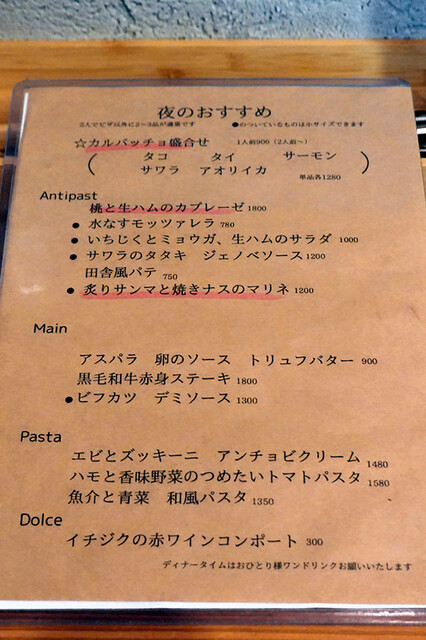 夜のおすすめ
2人でピザ以外に2〜3品が適量です ●のついているものは小サイズできます
☆カルパッチョ盛合せ 1人前900（2人前〜）
（ タコ タイ サーモン
サワラ アオリイカ ）
単品各1280
Antipast
桃と生ハムのカプレーゼ 1800
● 水なすモッツァレラ 780
● いちじくとミョウガ、生ハムのサラダ 1000
● サワラのタタキ ジェノベソース 1200
田舎風パテ 750
● 炙りサンマと焼きナスのマリネ 1200
Main
アスパラ 卵のソース トリュフバター 900
黒毛和牛赤身ステーキ 1800
● ビフカツ デミソース 1300
Pasta
エビとズッキーニ アンチョビクリーム 1480
ハモと香味野菜のつめたいトマトパスタ 1580
魚介と青菜 和風パスタ 1350
Dolce
イチジクの赤ワインコンポート 300
ディナータイムはおひとり様ワンドリンクお願いいたします